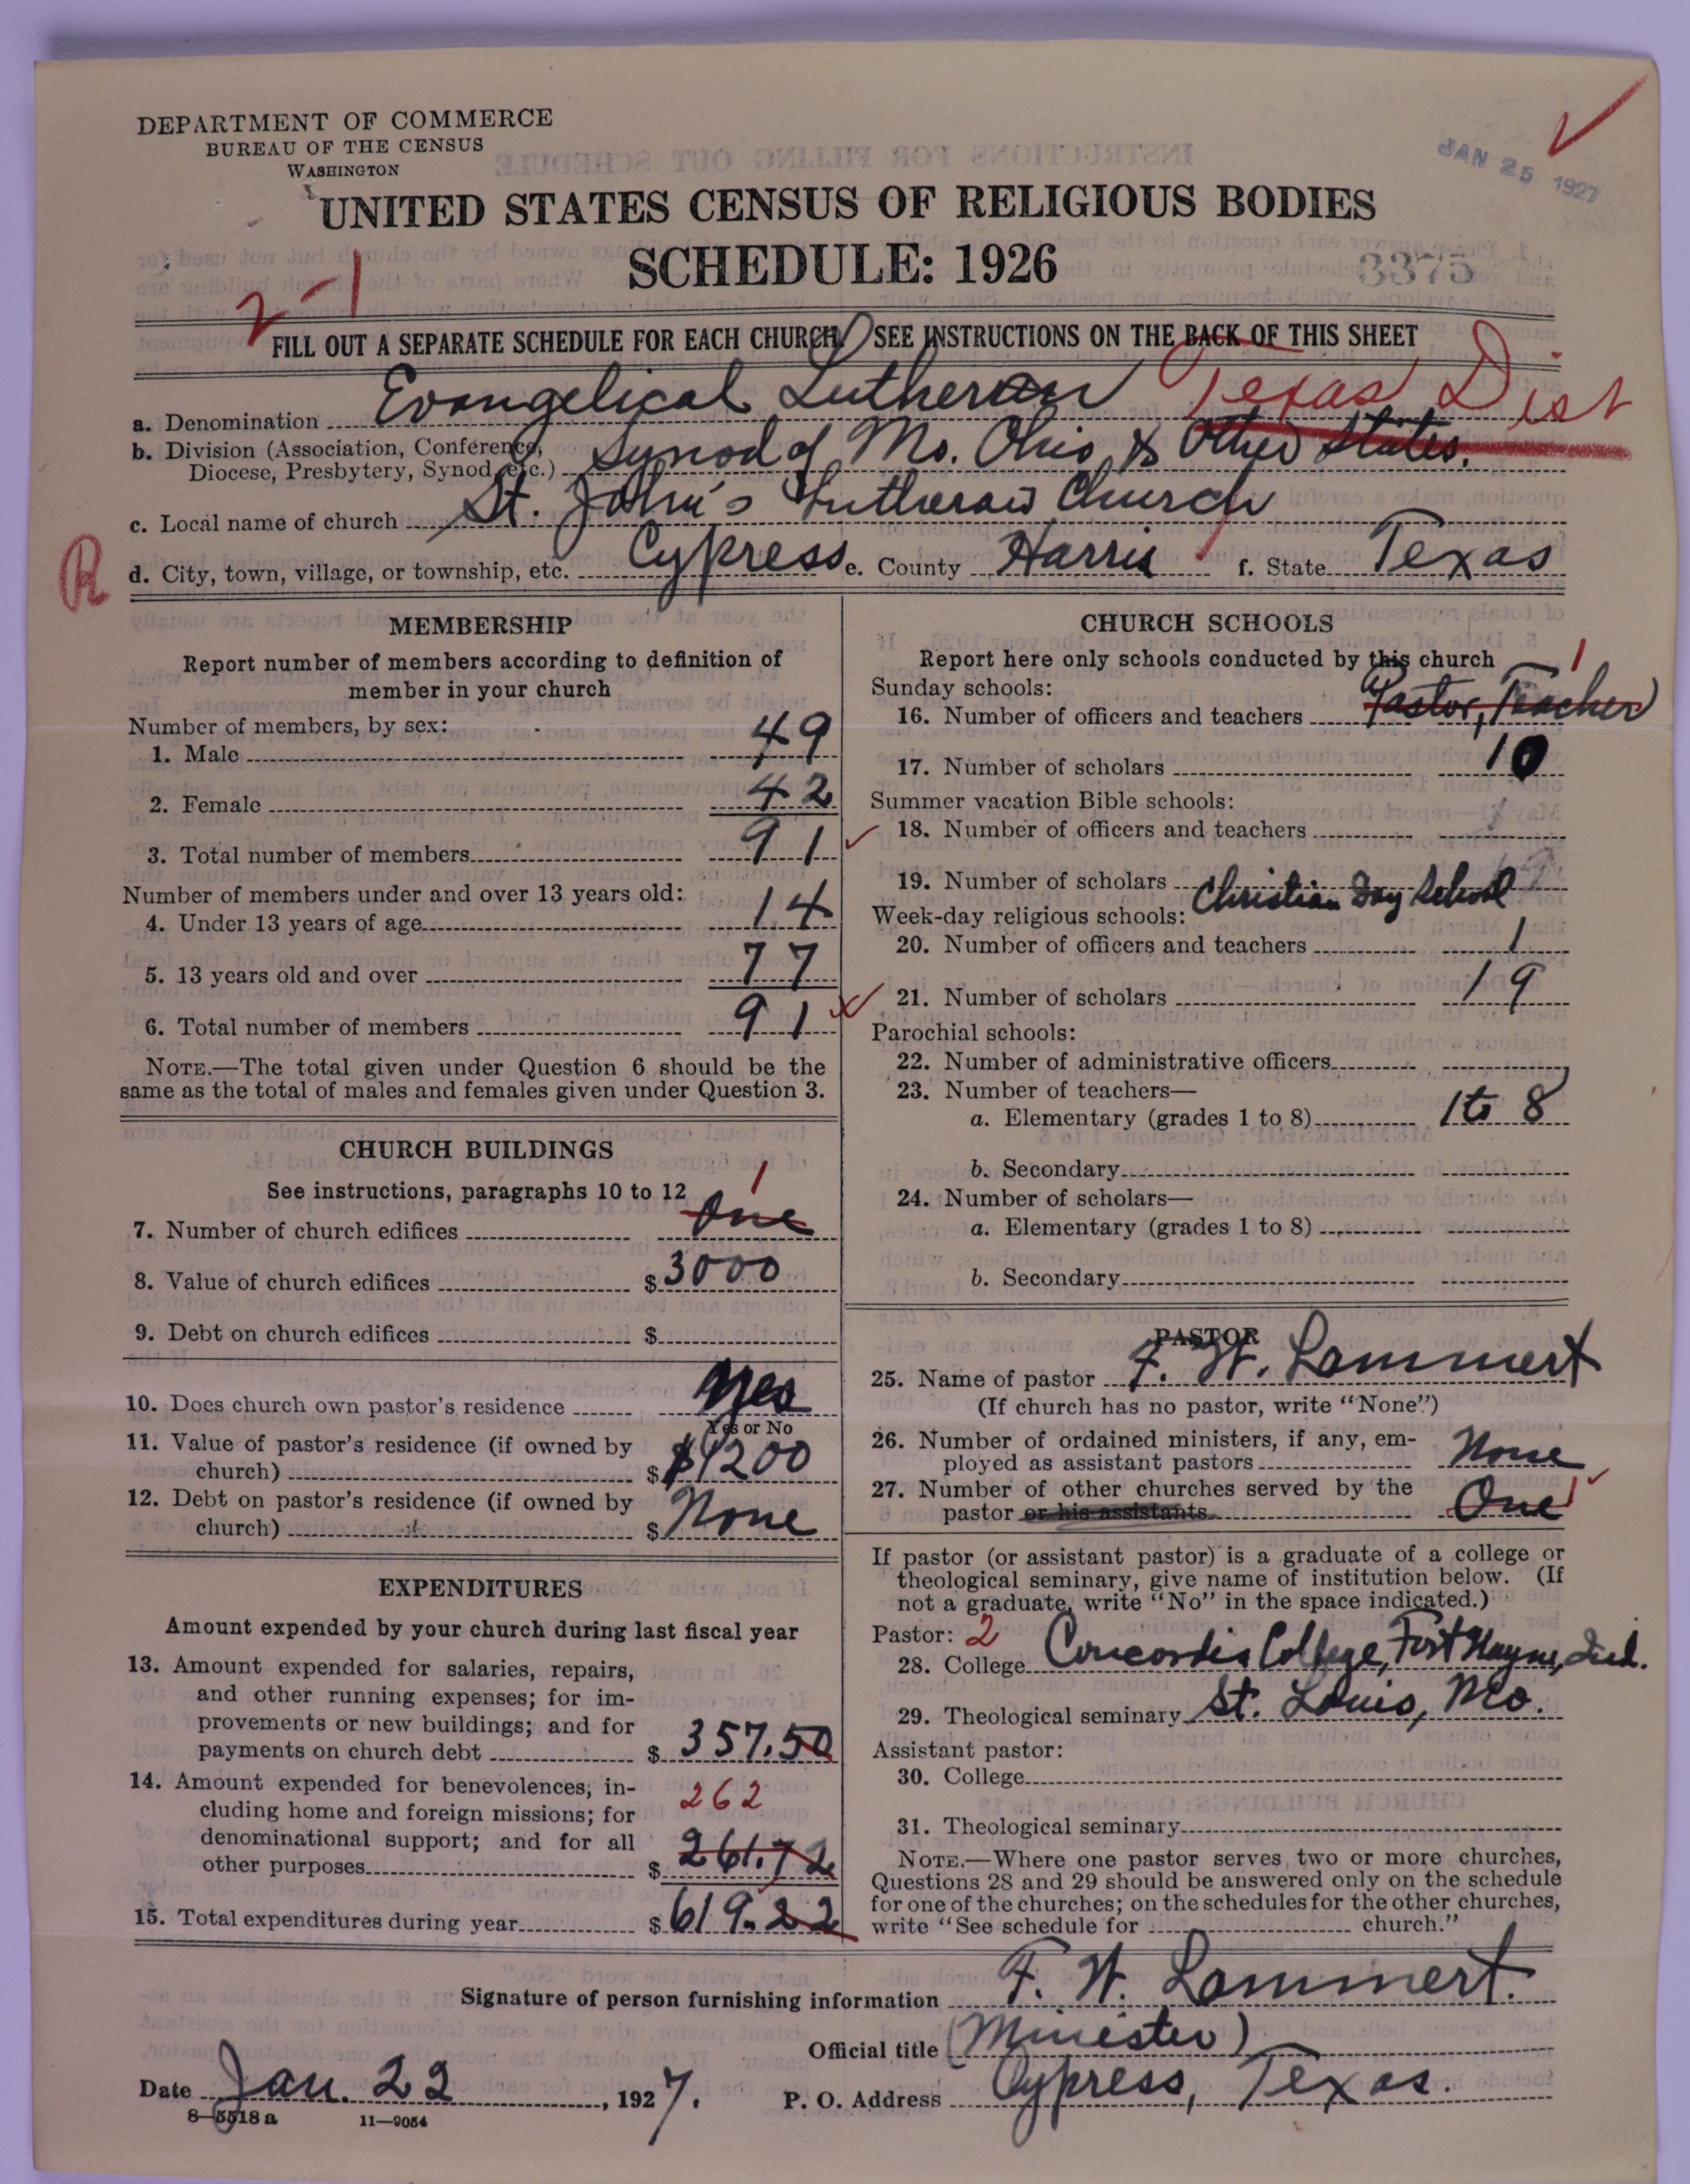 DEPARTMENT OF COMMERCE
BUREAU OF THE CENSUS
WASHINGTON
JAN 25 1927
UNITED STATES CENSUS OF RELIGIOUS BODIES
SCHEDULE: 1926
3375
2-1
FILL OUT A SEPARATE SCHEDULE FOR EACH CHURCH. SEE INSTRUCTIONS ON THE BACK OF THIS SHEET
a. Denomination Evangelical Lutheran Texas Dist
b. Division (Association, Conference, Diocese, Presbytery, Synod, etc.) Synod of Mo. Ohio & Other States.
c. Local name of church St. John's Lutheran Church
R
d. City, town, village, or township, etc. Cypress e. County Harris f. State Texas
MEMBERSHIP
Report number of members according to definition of
member in your church
Number of members, by sex:
1. Male 49
2. Female 42
3. Total number of members 91
Number of members under and over 13 years old:
4. Under 13 years of age 14
5. 13 years old and over 77
6. Total number of members 91
NOTE.—The total given under Question 6 should be the
same as the total of males and females given under Question 3.
CHURCH BUILDINGS
See instructions, paragraphs 10 to 12
1
7. Number of church edifices One
8. Value of church edifices $ 3000
9. Debt on church edifices $
10. Does church own pastor's residence Yes
Yes or No
11. Value of pastor's residence (if owned by
church) $ $1200
12. Debt on pastor's residence (if owned by
church) $ None
EXPENDITURES
Amount expended by your church during last fiscal year
13. Amount expended for salaries, repairs,
and other running expenses; for im-
provements or new buildings; and for
payments on church debt $ 357.50
14. Amount expended for benevolences, in-
cluding home and foreign missions; for
262
denominational support; and for all
other purposes $ 261.72
15. Total expenditures during year $ 619.22
CHURCH SCHOOLS
Report here only schools conducted by this church
1
Sunday schools:
16. Number of officers and teachers Pastor, Teacher
17. Number of scholars 10
Summer vacation Bible schools:
18. Number of officers and teachers
19. Number of scholars
Week-day religious schools: Christian Day School
20. Number of officers and teachers 1
21. Number of scholars 19
Parochial schools:
22. Number of administrative officers
23. Number of teachers—
a. Elementary (grades 1 to 8) 1 to 8
b. Secondary
24. Number of scholars—
a. Elementary (grades 1 to 8)
b. Secondary
PASTOR
25. Name of pastor F. W. Lammert
(If church has no pastor, write "None")
26. Number of ordained ministers, if any, em-
ployed as assistant pastors None
27. Number of other churches served by the
pastor or his assistants One 1
If pastor (or assistant pastor) is a graduate of a college or
theological seminary, give name of institution below. (If
not a graduate, write "No" in the space indicated.)
Pastor: 2
28. College Concordia College, Fort Wayne, Ind.
29. Theological seminary St. Louis, Mo.
Assistant pastor:
30. College
31. Theological seminary
NOTE.—Where one pastor serves two or more churches,
Questions 28 and 29 should be answered only on the schedule
for one of the churches; on the schedules for the other churches,
write "See schedule for church."
Signature of person furnishing information F. W. Lammert.
Official title (Minister)
Date Jan. 22, 1927. P. O. Address Cypress, Texas.
8—5518 a 11—9054